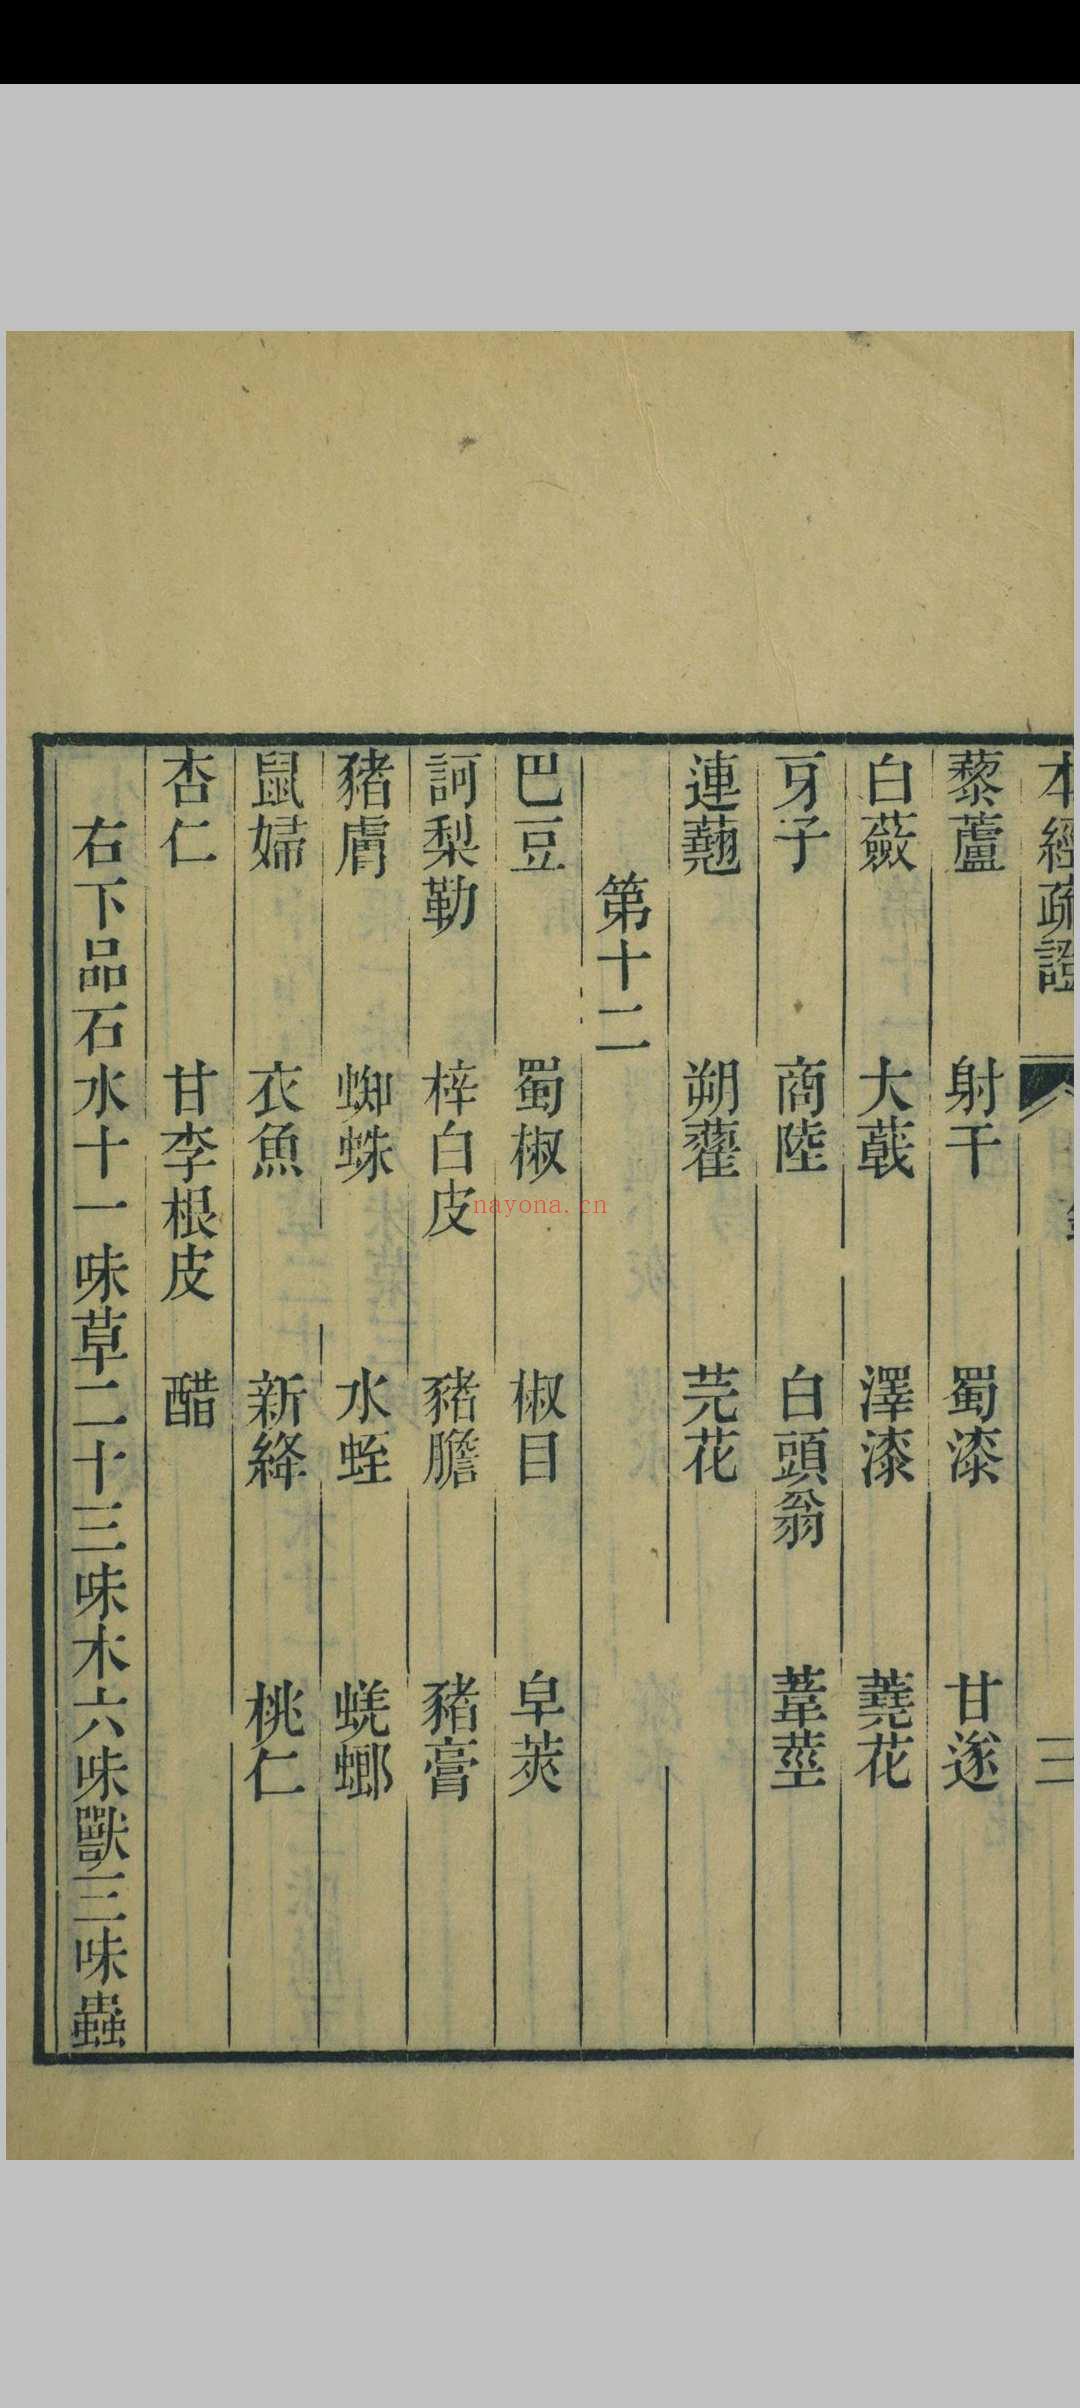 本經疏證 三
藜蘆 射干 蜀漆 甘遂
白蘞 大戟 澤漆 蕘花
牙子 商陸 白頭翁 葦莖
連翹 朔藿 芫花
第十二
巴豆 蜀椒 椒目 皁莢
訶梨勒 梓白皮 豬膽 豬膏
豬膚 蜘蛛 水蛭 蜣螂
鼠婦 衣魚 新絳 桃仁
杏仁 甘李根皮 醋
右下品石水十一味草二十三味木六味獸三味蟲
nayona.cn